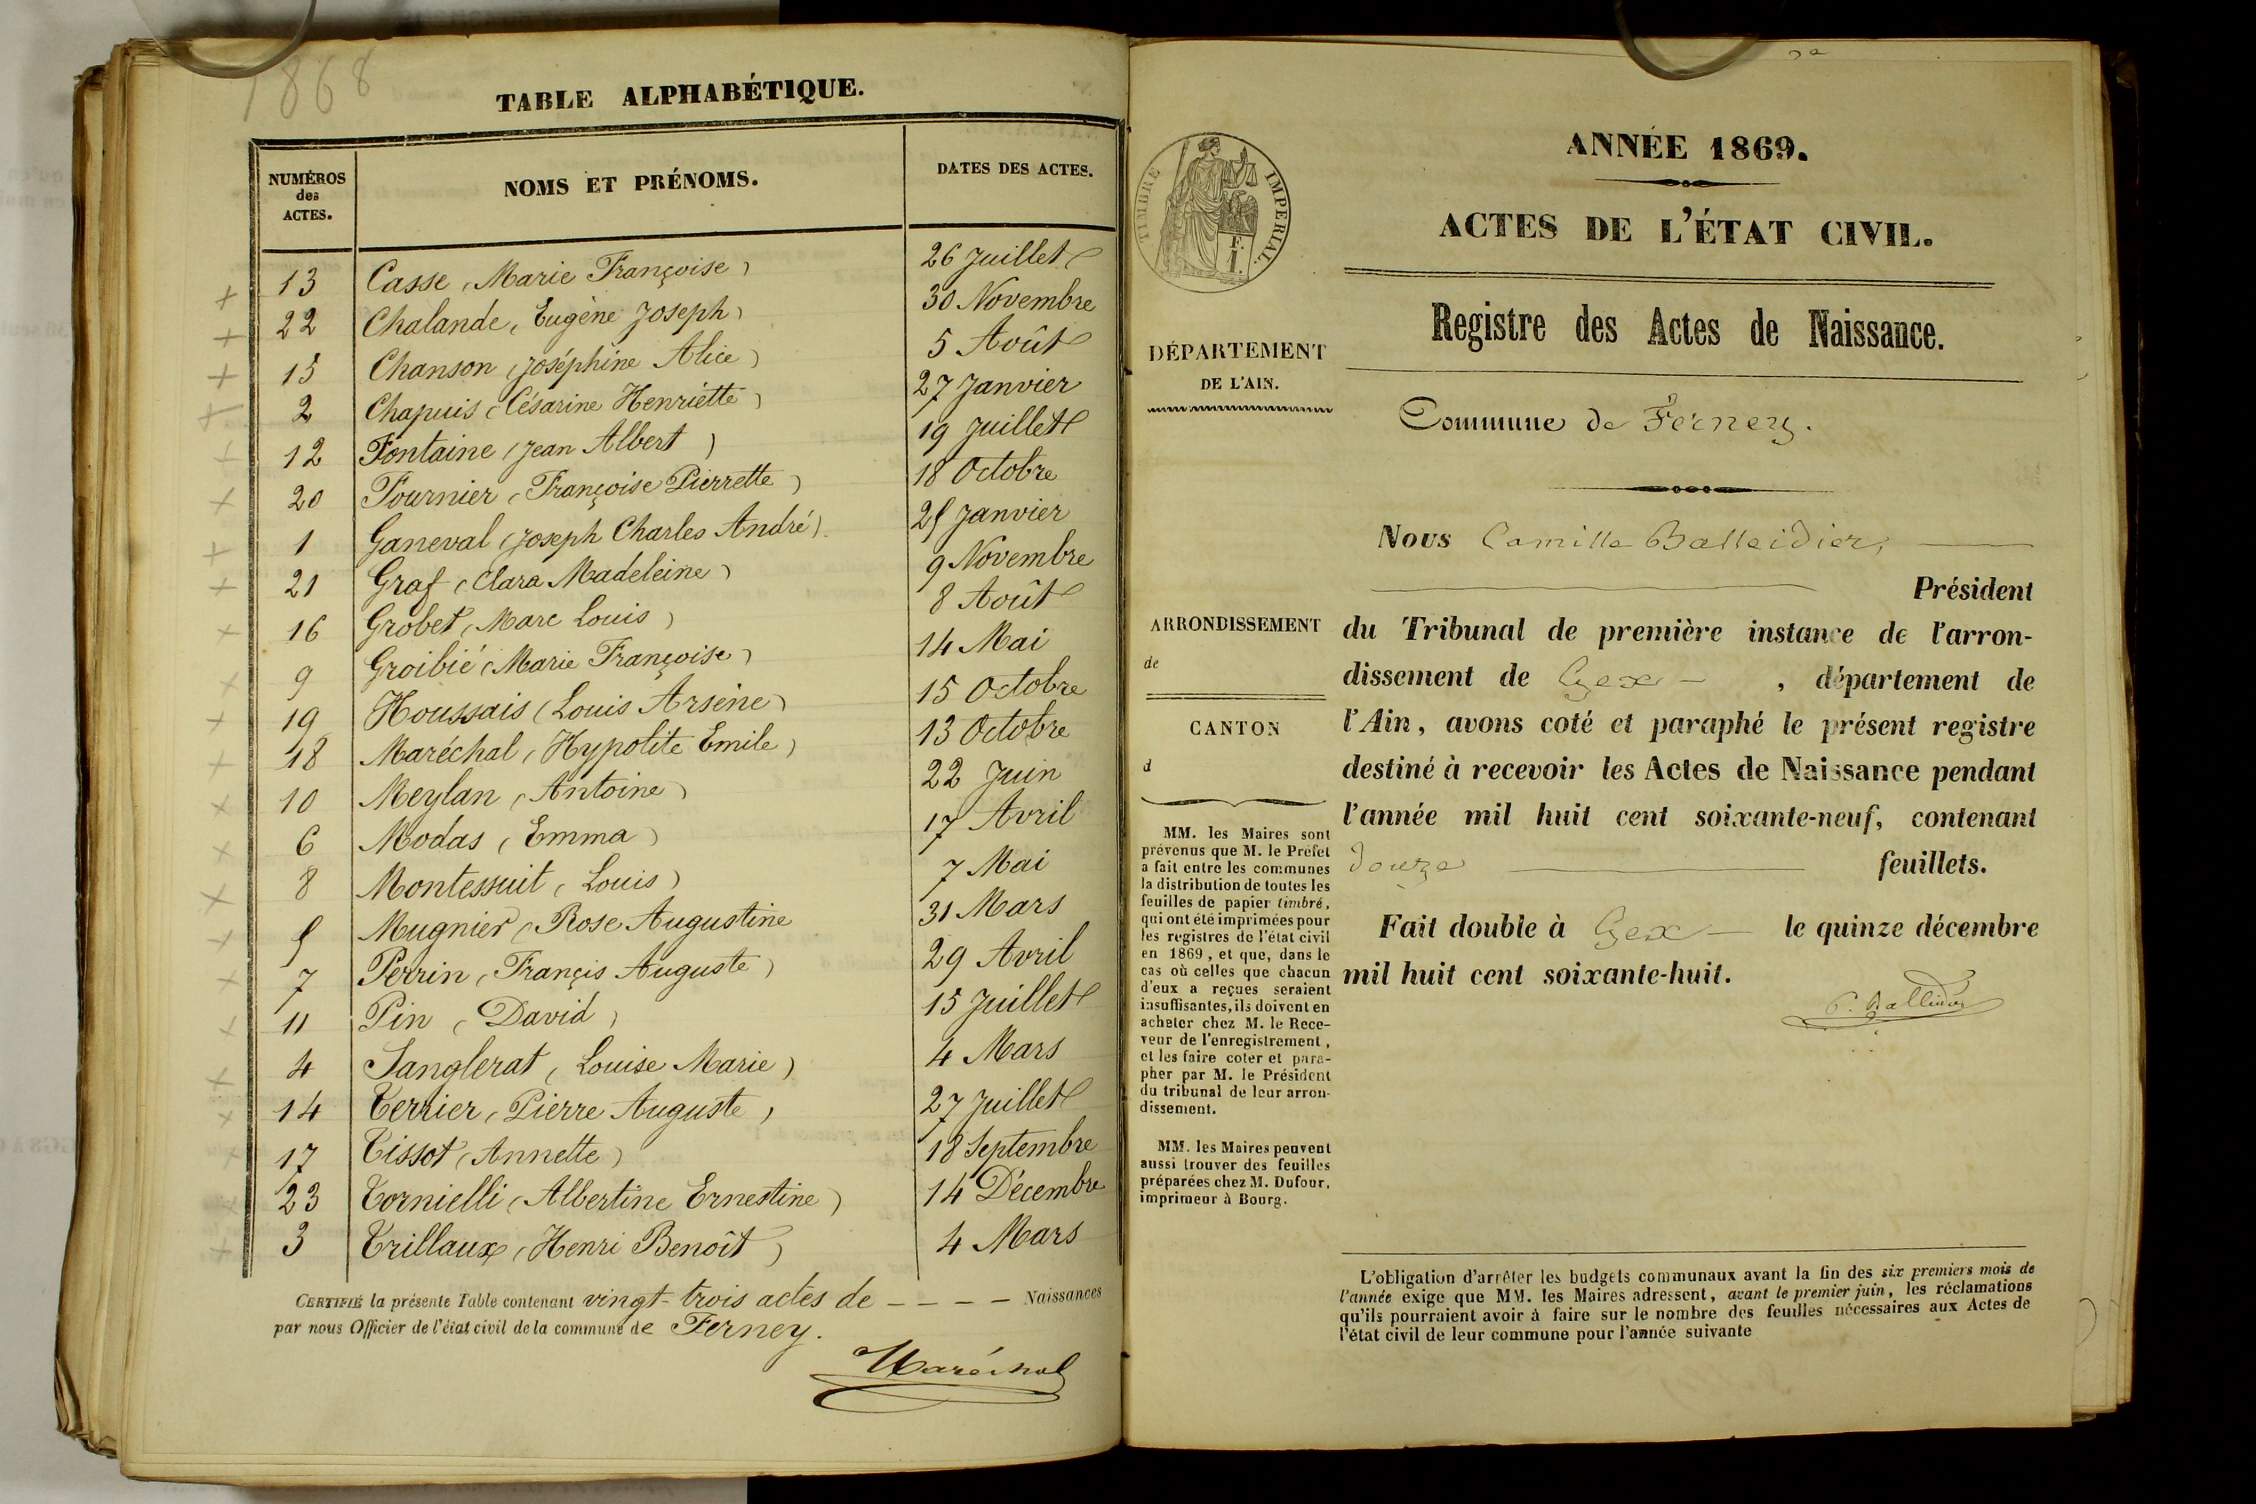 1868
TABLE ALPHABÉTIQUE.
NUMÉROS des ACTES. NOMS ET PRÉNOMS. DATES DES ACTES.
13 Casse (Marie Françoise) 26 Juillet
22 Chalande (Eugène Joseph) 30 Novembre
15 Chanson (Joséphine Alice) 5 Août
2 Chapuis (Césarine Henriette) 27 Janvier
12 Fontaine (Jean Albert) 19 Juillet
20 Fournier (Françoise Pierrette) 18 Octobre
1 Ganeval (Joseph Charles André) 25 Janvier
21 Graf (Clara Madeleine) 9 Novembre
16 Grobet (Marc Louis) 8 Août
9 Groibié (Marie Françoise) 14 Mai
19 Houssais (Louis Arsène) 15 Octobre
18 Maréchal (Hypolite Emile) 13 Octobre
10 Meylan (Antoine) 22 Juin
6 Modas (Emma) 17 Avril
8 Montessuit (Louis) 7 Mai
5 Mugnier (Rose Augustine 31 Mars
7 Perrin (Françis Auguste) 29 Avril
11 Pin (David) 15 Juillet
4 Sanglerat (Louise Marie) 4 Mars
14 Terrier (Pierre Auguste) 27 Juillet
17 Tissot (Annette) 18 Septembre
23 Tornielli (Albertine Ernestine) 14 Décembre
3 Trillaux (Henri Benoît) 4 Mars
CERTIFIÉ la présente Table contenant vingt-trois actes de - - - - Naissances
par nous Officier de l'état civil de la commune de Ferney.
Maréchal
TIMBRE IMPERIAL.
F.
I.
DÉPARTEMENT
DE L'AIN.
ARRONDISSEMENT
de
CANTON
d
MM. les Maires sont
prévenus que M. le Préfet
a fait entre les communes
la distribution de toutes les
feuilles de papier timbré,
qui ont été imprimées pour
les registres de l'état civil
en 1869, et que, dans le
cas où celles que chacun
d'eux a reçues seraient
insuffisantes, ils doivent en
acheter chez M. le Rece-
veur de l'enregistrement,
et les faire coter et para-
pher par M. le Président
du tribunal de leur arron-
dissement.
MM. les Maires peuvent
aussi trouver des feuilles
préparées chez M. Dufour,
imprimeur à Bourg.
ANNÉE 1869.
ACTES DE L'ÉTAT CIVIL.
Registre des Actes de Naissance.
Commune de Ferney.
Nous Camille Balleidier,
Président
du Tribunal de première instance de l'arron-
dissement de Gex - , département de
l'Ain, avons coté et paraphé le présent registre
destiné à recevoir les Actes de Naissance pendant
l'année mil huit cent soixante-neuf, contenant
douze feuillets.
Fait double à Gex - le quinze décembre
mil huit cent soixante-huit.
C. Balleidier
L'obligation d'arrêter les budgets communaux avant la fin des six premiers mois de
l'année exige que MM. les Maires adressent, avant le premier juin, les réclamations
qu'ils pourraient avoir à faire sur le nombre des feuilles nécessaires aux Actes de
l'état civil de leur commune pour l'année suivante